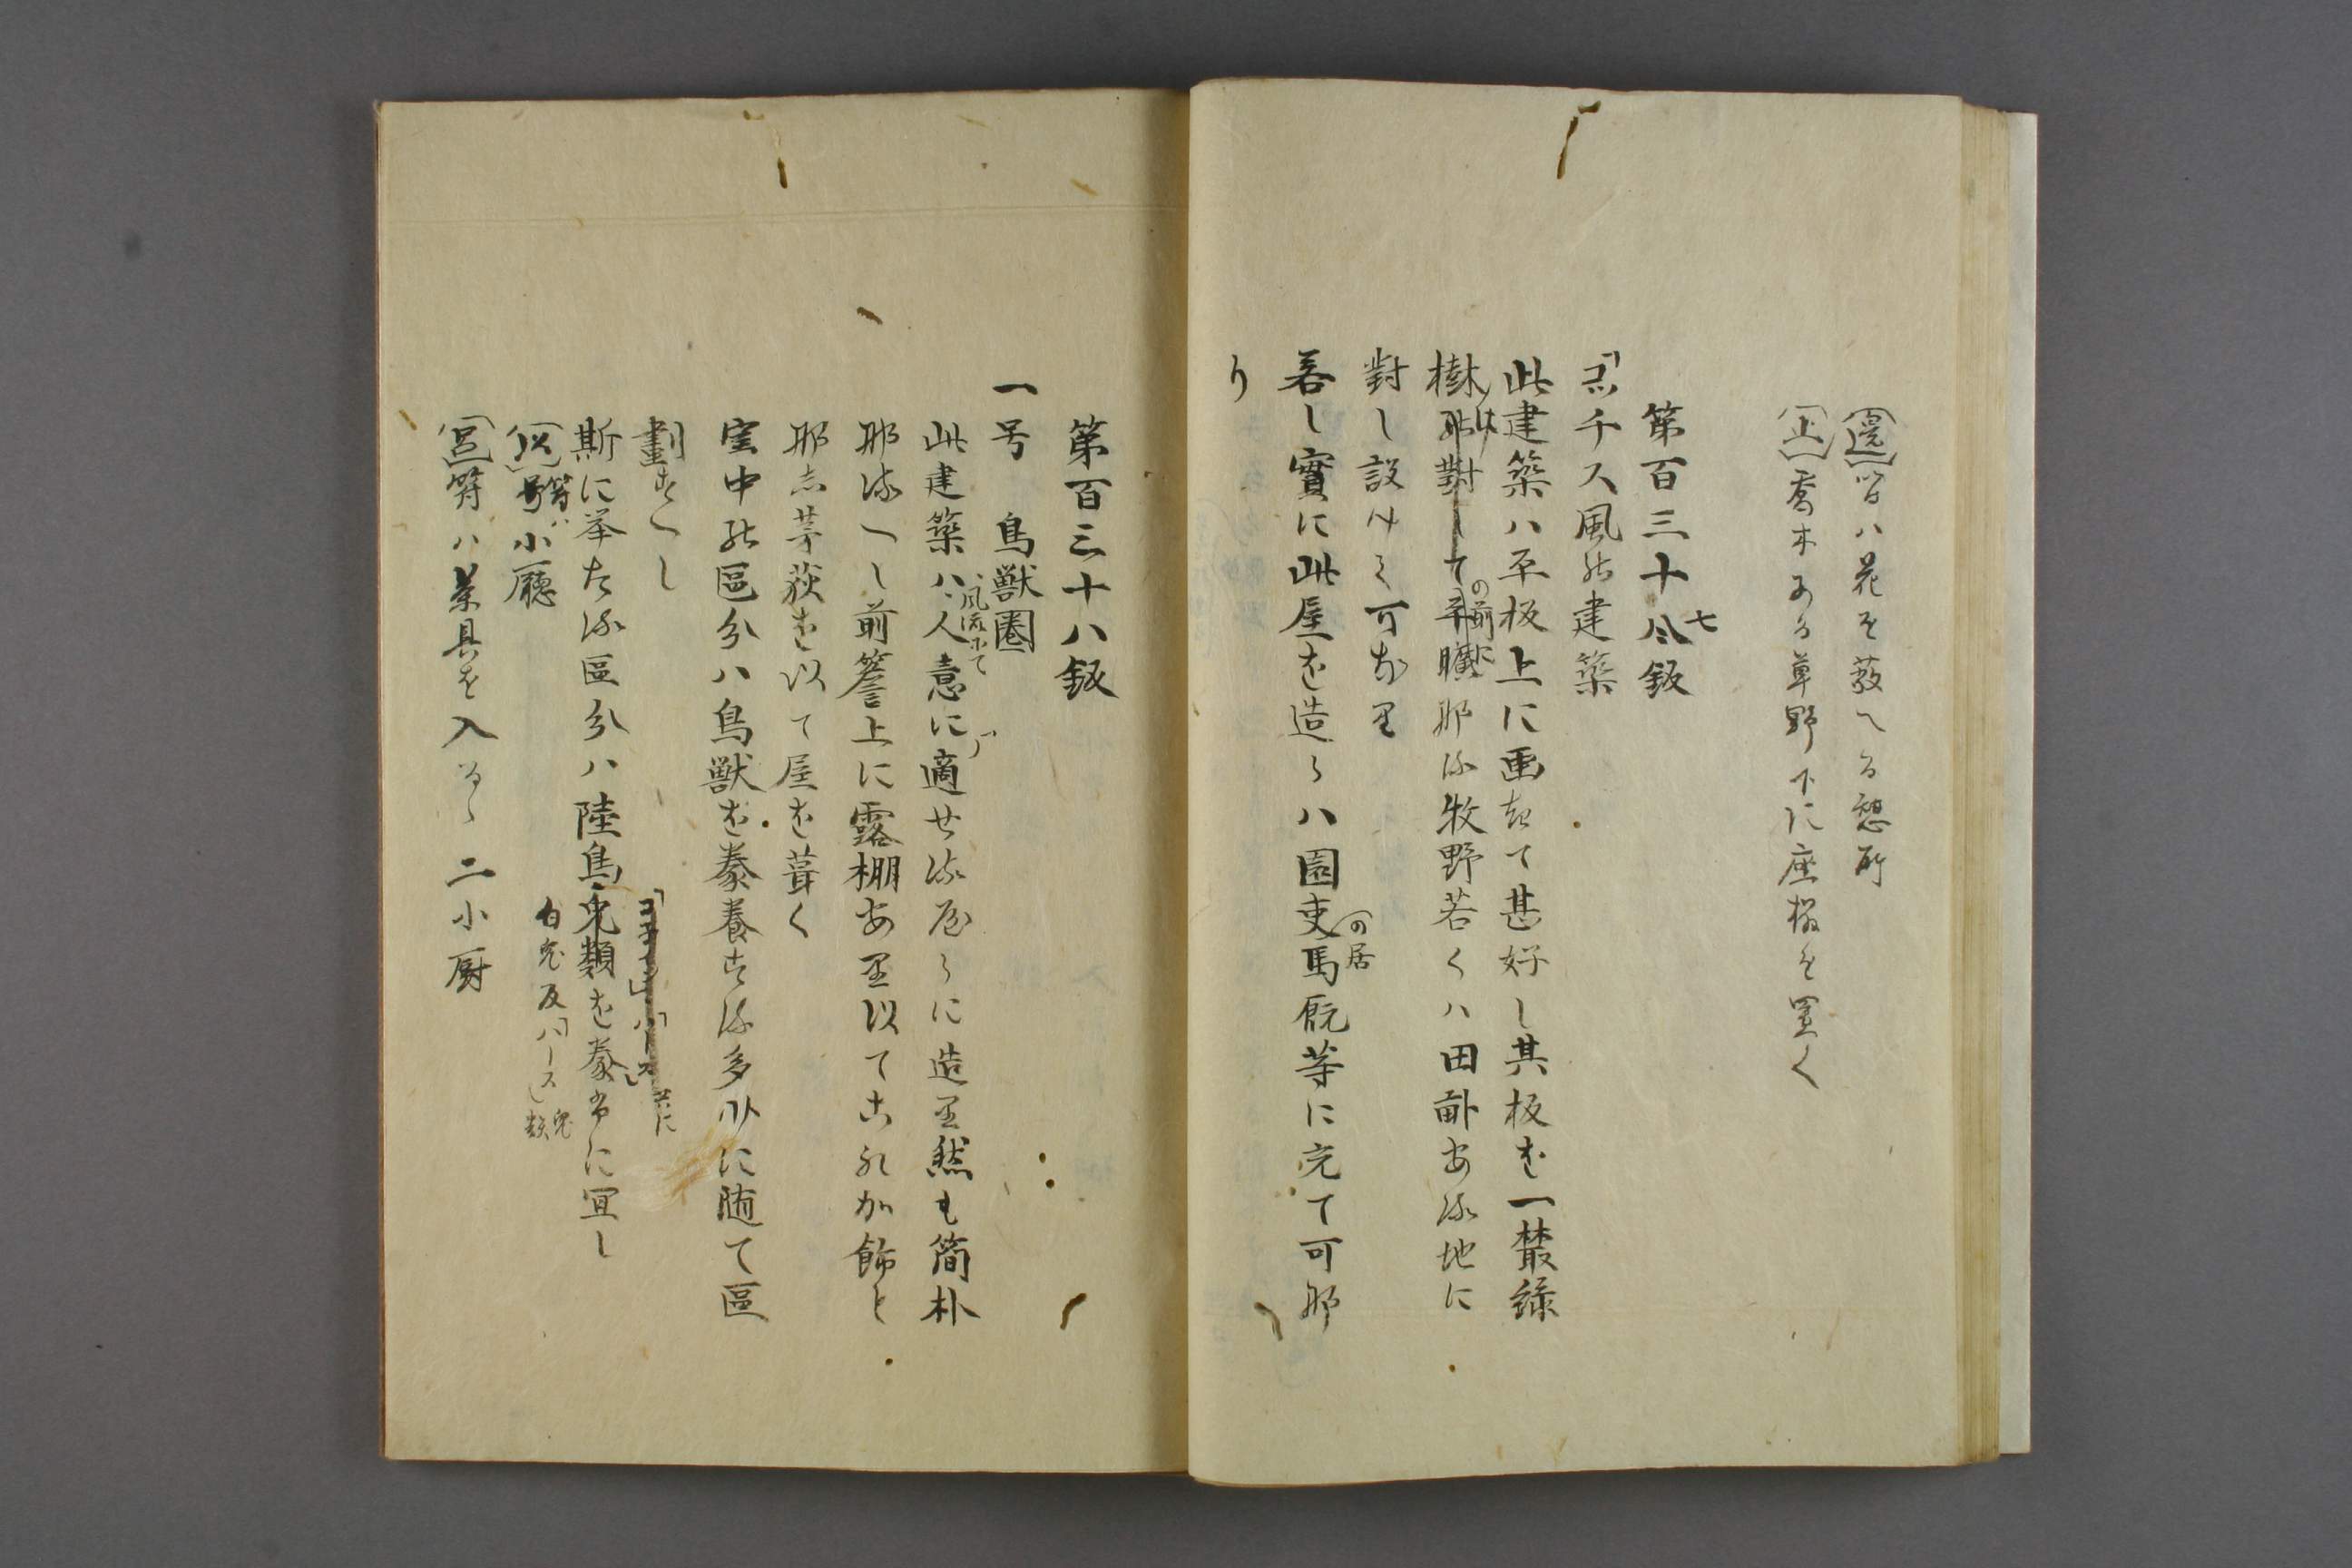 (邊)号ハ花を藝へる憩所
(止)喬木ある草野下に座榻を置く
第百三十七八鈑
「ゴチス風能建築
此建築ハ平板上に画起て甚好し其板を一叢緑
樹能對して平臓の前に那る牧野若くハ田畝あ流地に
對し設けく可な里
若し實に此屋を造らハ園吏の居馬厩等に充て可那
り
第百三十八鈑
一号 鳥獣圏
此建築ハ人意に適せ流が如らに造里然も簡朴
風流にて
那流へし前簷上に露棚あ里以てこれか飾と
那し茅荻を以て屋を葺く
室中能區分ハ鳥獣を豢養する多少に随て區
劃すへし
斯に挙たる區分ハ陸鳥兎類を豢ふに宜し
白兎及「ハース」兎類
(以)符ハ小廳
(呂)符ハ菜具を入るゝ二小厨